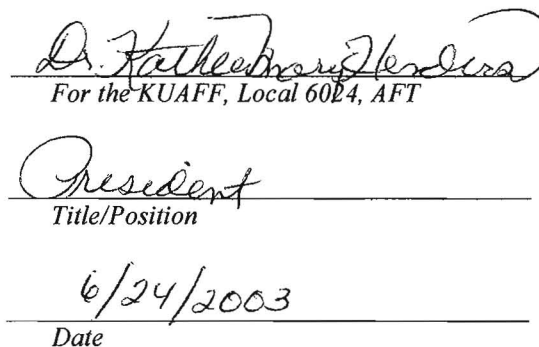 Dr. Kathleen Mary Henders
For the KUAFF, Local 6024, AFT
President
Title/Position
6/24/2003
Date